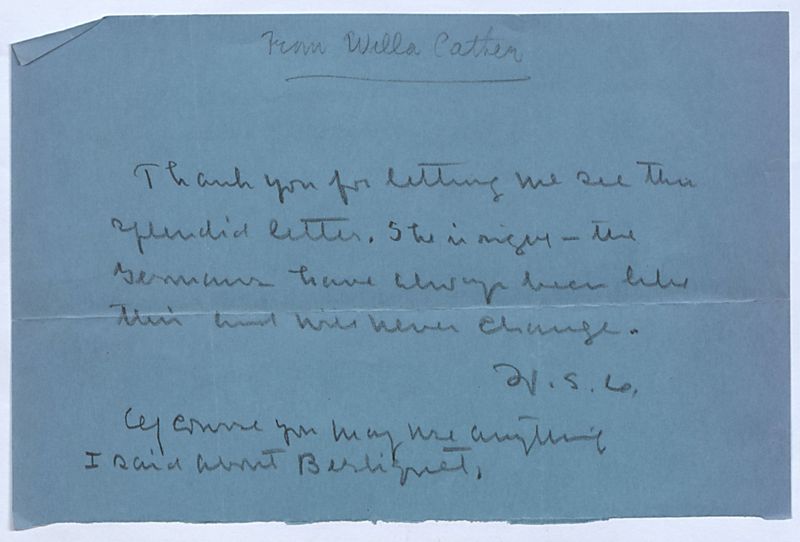 From Willa Cather
Thank you for letting me see this
splendid letter. She is right — the
Germans have always been like
this and will never change.
W. S. C.
Of course you may use anything
I said about Best